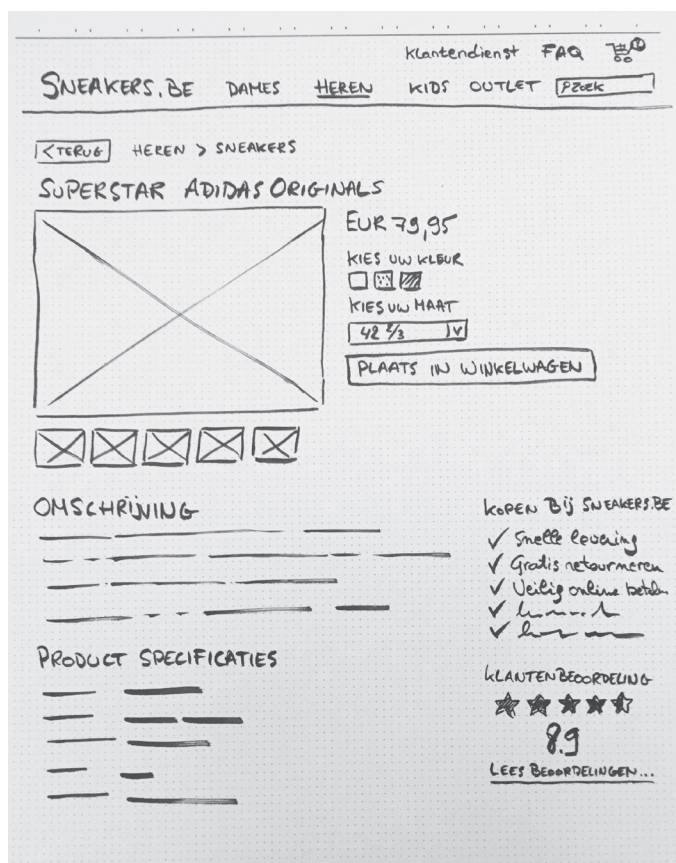 Klantendienst FAQ
SNEAKERS.BE DAMES HEREN KIDS OUTLET
< TERUG HEREN > SNEAKERS
SUPERSTAR ADIDAS ORIGINALS
EUR 79,95
KIES UW KLEUR
KIES UW MAAT
42 2/3
PLAATS IN WINKELWAGEN
OMSCHRIJVING
KOPEN BIJ SNEAKERS.BE
Snelle levering
Gratis retourneren
Veilig online betalen
PRODUCT SPECIFICATIES
KLANTENBEOORDELING
8.9
LEES BEOORDELINGEN...